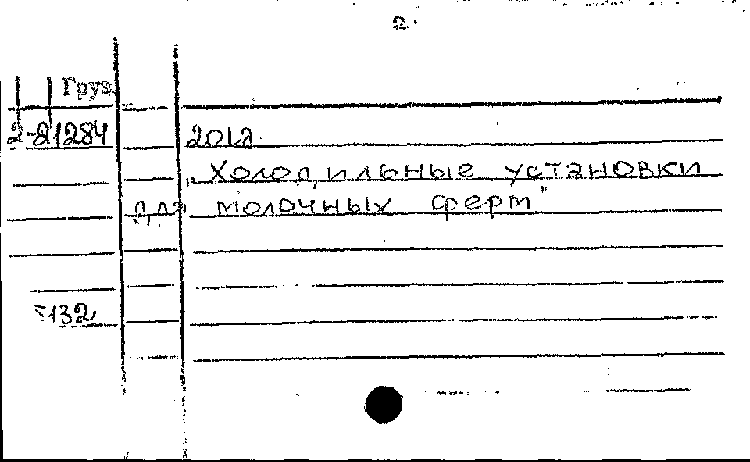 2.
Груз
2-21284 2012
"Холодильные установки
для молочных ферм"
5132